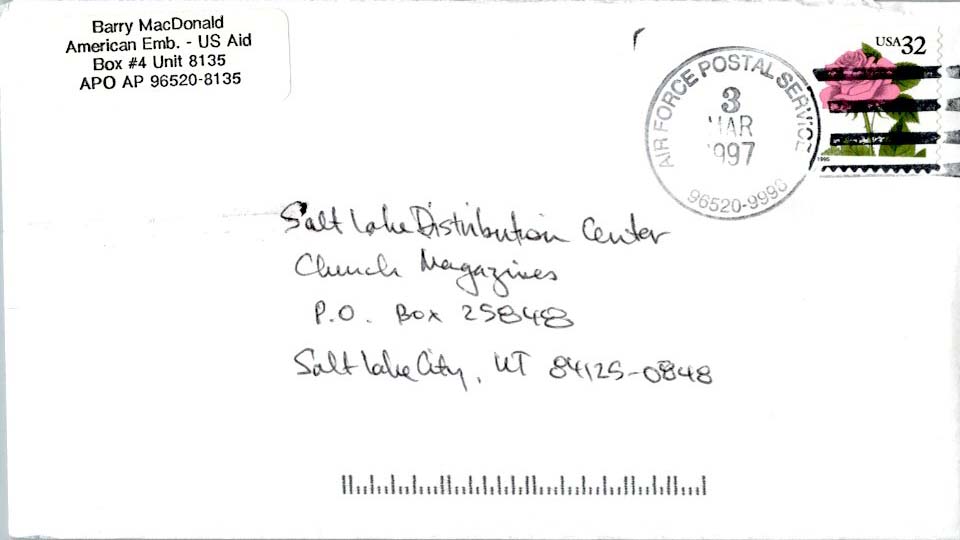 Barry MacDonald
American Emb. - US Aid
Box #4 Unit 8135
APO AP 96520-8135
USA 32
1995
AIR FORCE POSTAL SERVICE
3
MAR
1997
96520-9998
Salt Lake Distribution Center
Church Magazines
P.O. Box 25848
Salt Lake City, UT 84125-0848